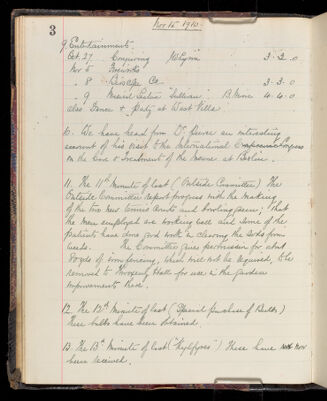 3
Nov 15th 1910
9. Entertainments.
Oct. 27 Conjuring 3. 3. 0
Nov 5 Fireworks
" 8 Bioscope Co 3. 3. 0
" 9 Musical " " 4. 4. 0
also Dance & Party at West Villa
10. We have heard from Dr. Pierce an interesting
account of his visit to the International Congress
on the Care & Treatment of the Insane at Berlin.
11. The 11th Minute of last (Outside Committee) The
Outside Committee report progress with the making
of the two new Tennis Courts and bowling green; That
the men employed are working well and some of the
patients have done good work in clearing the sods from
weeds. The Committee gives permission for about
80 yds of iron fencing, which will not be required, to be
removed to Hall for use in the garden
improvements there.
12. The 12th Minute of last (Special purchase of Bulbs)
These bulbs have been obtained.
13. The 13th Minute of last ( ) These have now
been received.